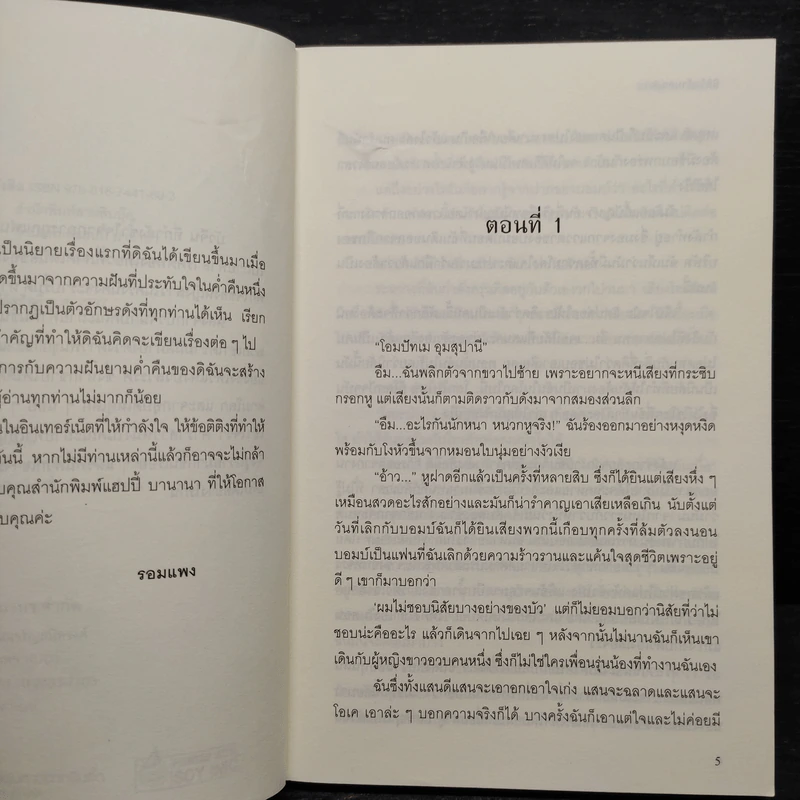 เป็นนิยายเรื่องแรกที่ดิฉันได้เขียนขึ้นมาเมื่อ
ดขึ้นมาจากความฝันที่ประทับใจในค่ำคืนหนึ่ง
ปรากฏเป็นตัวอักษรดังที่ทุกท่านได้เห็น เรียก
ำคัญที่ทำให้ดิฉันคิดจะเขียนเรื่องต่อ ๆ ไป
การกับความฝันยามค่ำคืนของดิฉันจะสร้าง
ผู้อ่านทุกท่านไม่มากก็น้อย
นในอินเทอร์เน็ตที่ให้กำลังใจ ให้ข้อติติงที่ทำให้
วันนี้ หากไม่มีท่านเหล่านี้แล้วก็อาจจะไม่กล้า
บคุณสำนักพิมพ์แฮปปี้ บานานา ที่ให้โอกาส
บคุณค่ะ
รอมแพง
ตอนที่ 1
"โอมปัทเม อุมสุปานี"
อืม...ฉันพลิกตัวจากขวาไปซ้าย เพราะอยากจะหนีเสียงที่กระซิบ
กรอกหู แต่เสียงนั้นก็ตามติดราวกับดังมาจากสมองส่วนลึก
"อืม...อะไรกันนักหนา หนวกหูจริง!" ฉันร้องออกมาอย่างหงุดหงิด
พร้อมกับโงหัวขึ้นจากหมอนใบนุ่มอย่างงัวเงีย
"อ้าว..." หูฝาดอีกแล้วเป็นครั้งที่หลายสิบ ซึ่งก็ได้ยินแต่เสียงหึ่ง ๆ
เหมือนสวดอะไรสักอย่างและมันก็น่ารำคาญเอาเสียเหลือเกิน นับตั้งแต่
วันที่เลิกกับบอมบ์ฉันก็ได้ยินเสียงพวกนี้เกือบทุกครั้งที่ล้มตัวลงนอน
บอมบ์เป็นแฟนที่ฉันเลิกด้วยความร้าวรานและแค้นใจสุดชีวิตเพราะอยู่
ดี ๆ เขาก็มาบอกว่า
'ผมไม่ชอบนิสัยบางอย่างของบัว' แต่ก็ไม่ยอมบอกว่านิสัยที่ว่าไม่
ชอบน่ะคืออะไร แล้วก็เดินจากไปเฉย ๆ หลังจากนั้นไม่นานฉันก็เห็นเขา
เดินกับผู้หญิงขาวอวบคนหนึ่ง ซึ่งก็ไม่ใช่ใครเพื่อนรุ่นน้องที่ทำงานฉันเอง
ฉันซึ่งทั้งแสนดีแสนจะเอาอกเอาใจเก่ง แสนจะฉลาดและแสนจะ
โอเค เอาล่ะ ๆ บอกความจริงก็ได้ บางครั้งฉันก็เอาแต่ใจและไม่ค่อยมี
5